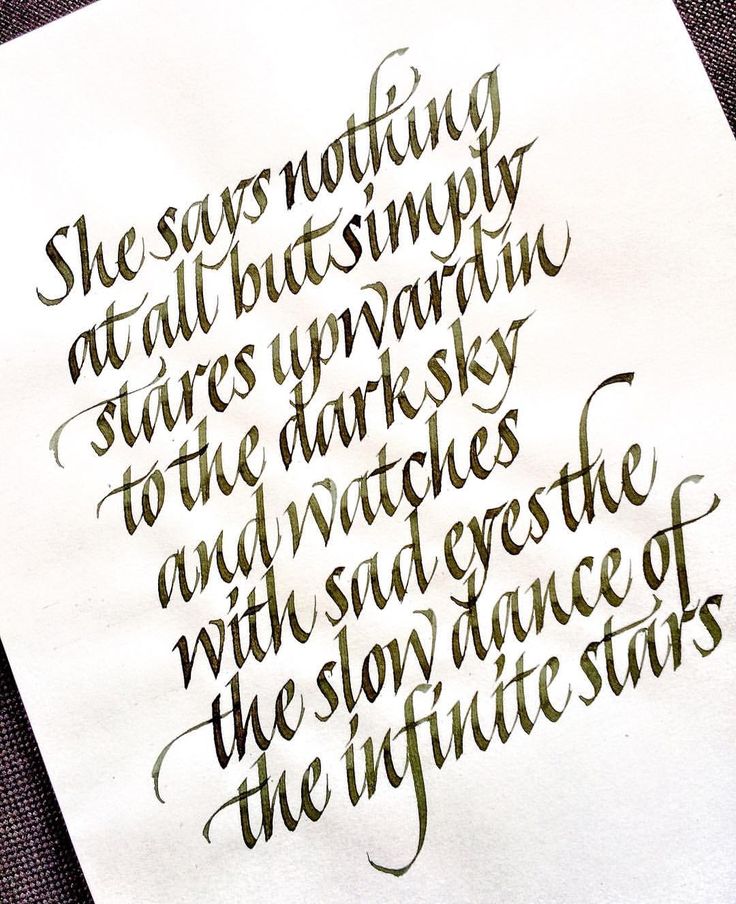 She says nothing
at all but simply
stares upward in
to the dark sky
and watches
with sad eyes the
the slow dance of
the infinite stars